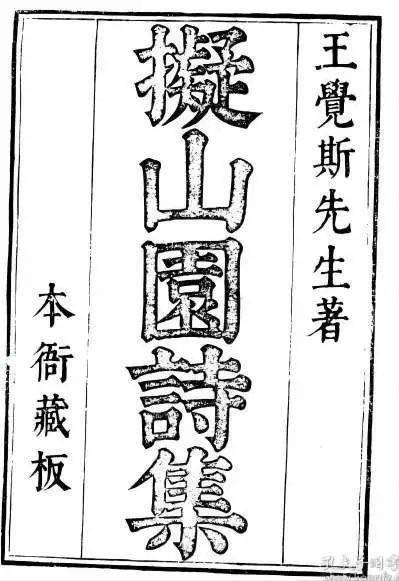 王覺斯先生著
擬山園詩集
本衙藏板